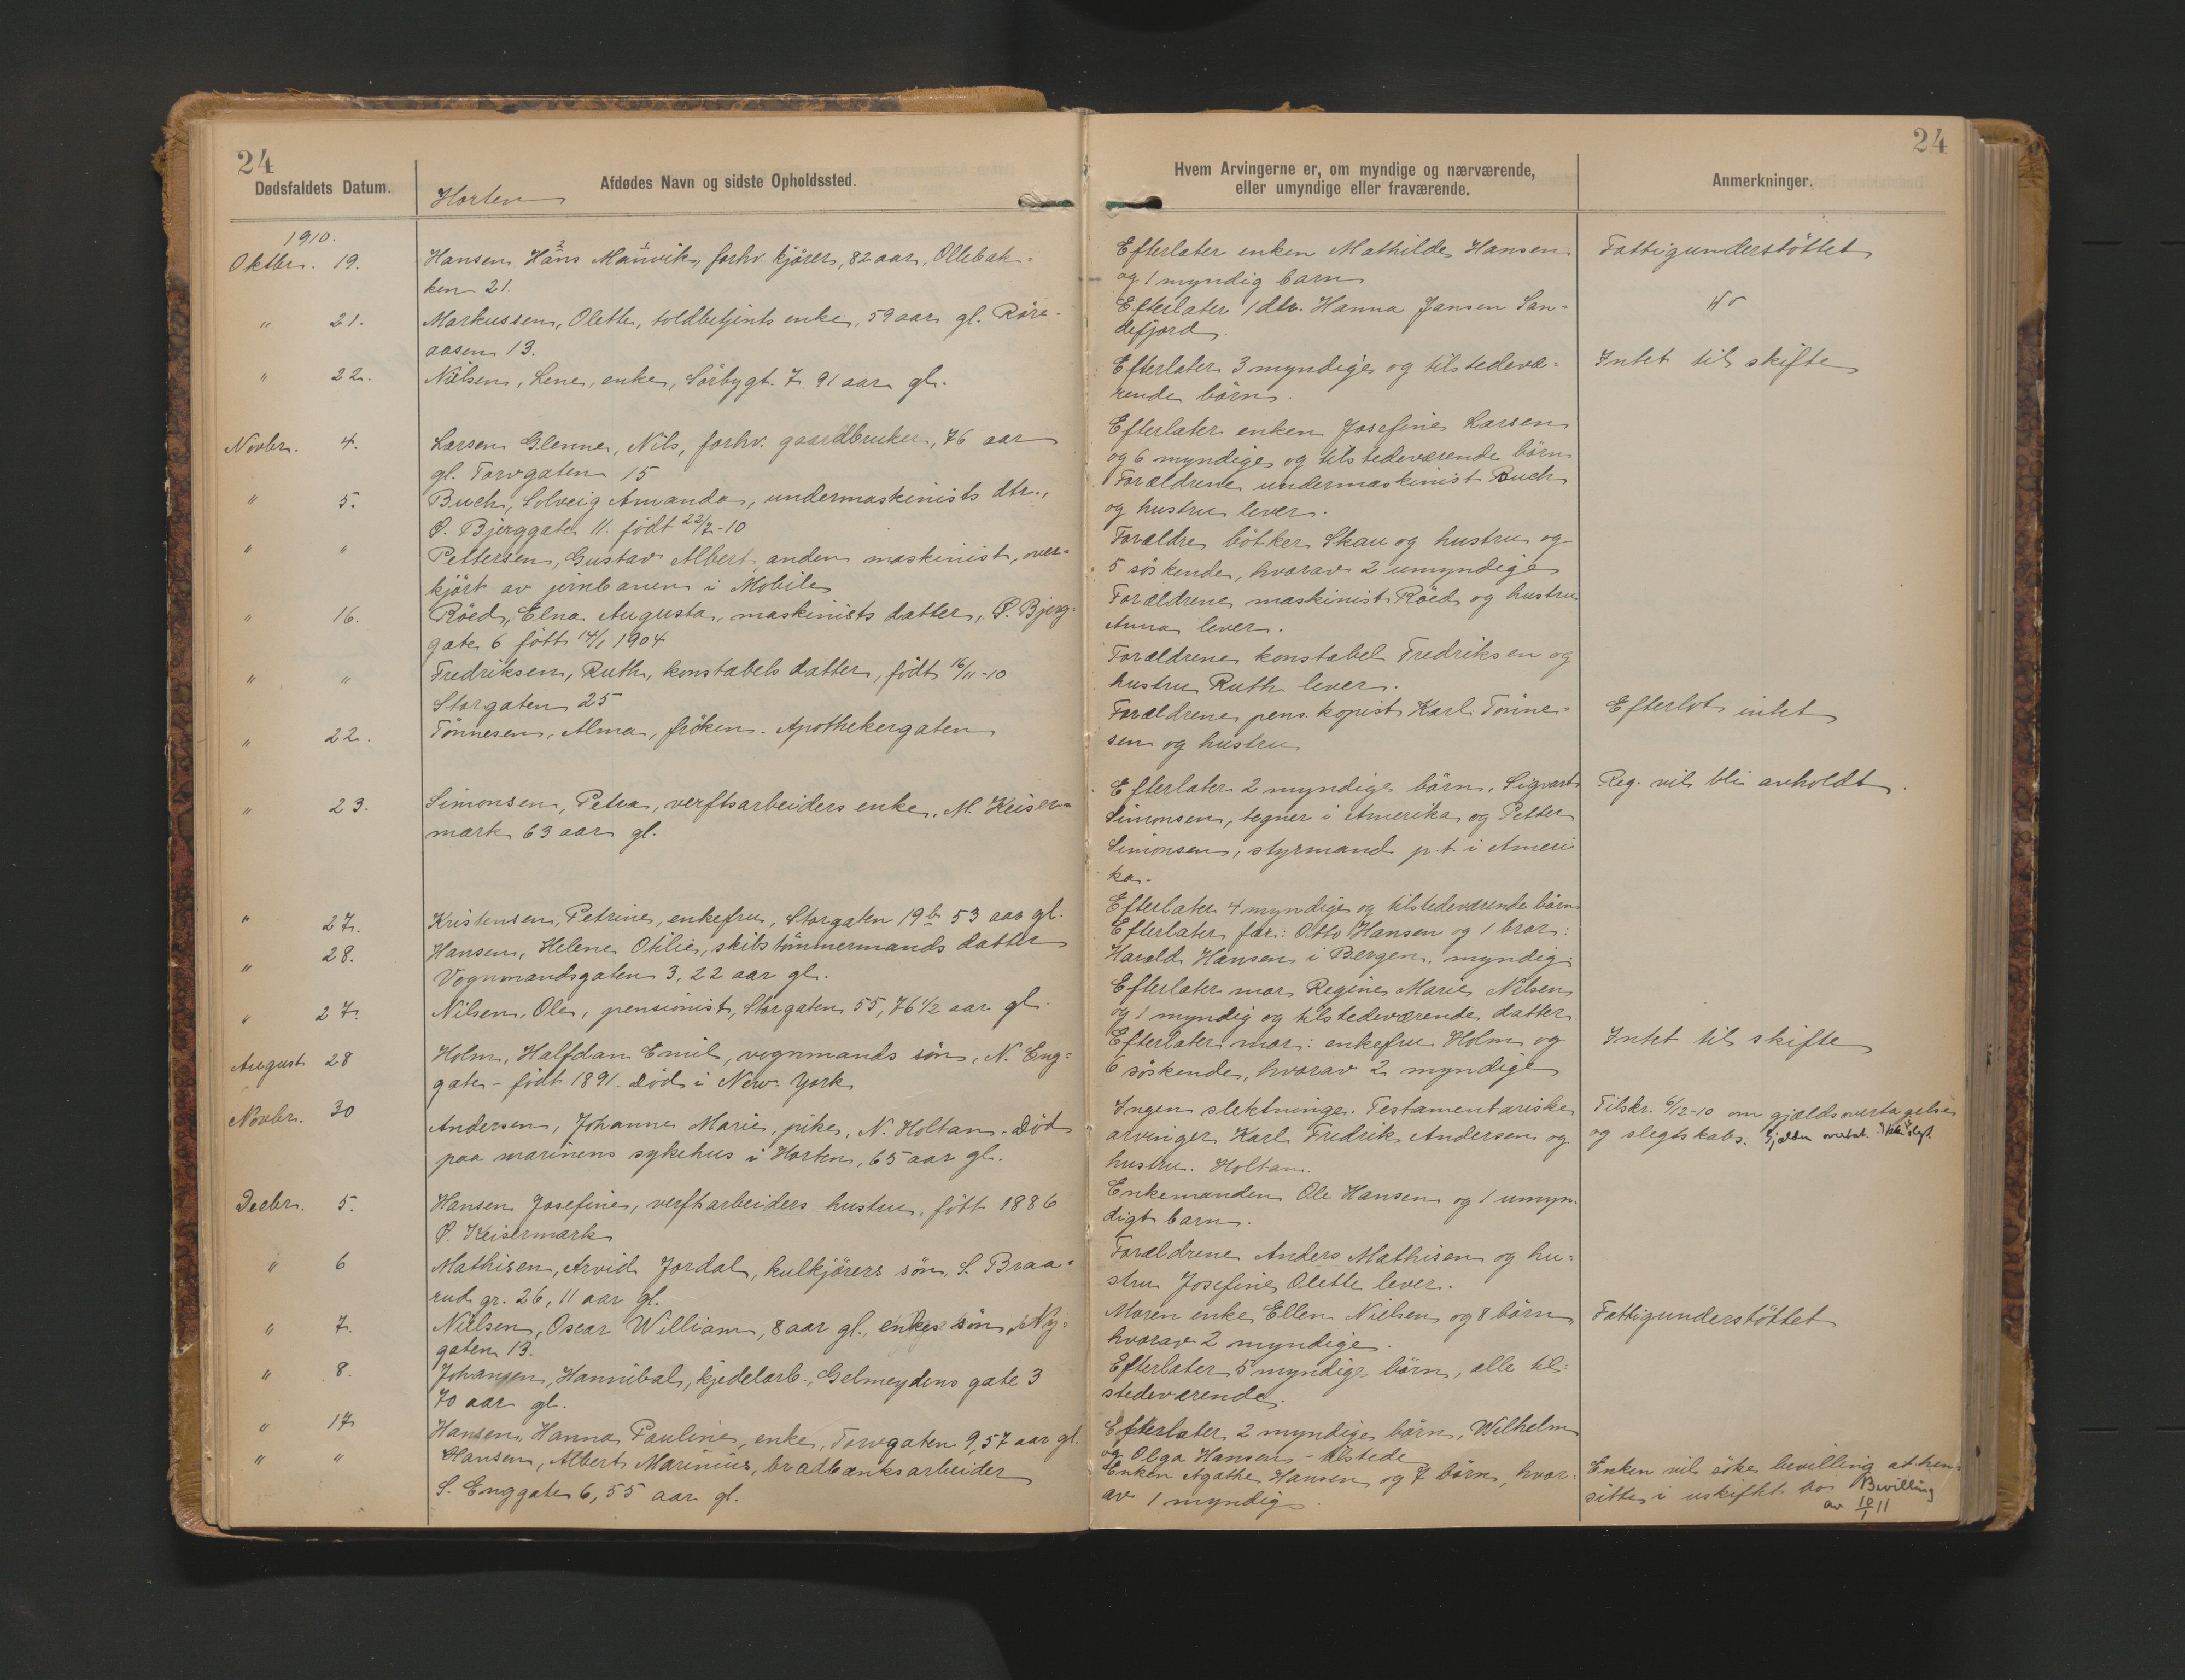 24
Dødsfaldets Datum.
Afdødes Navn og sidste Opholdssted.
Horten
1910.
Oktbr. 19.
Hansen, Hans Manvik, forhv. kjører, 82 aar, Ollebak-
ken 21.
" 21.
Markussen, Olette, toldbetjents enke, 59 aar gl. Røre-
aasen 13.
" 22.
Nilsen, Lene, enke, Sörbygt. 7. 91 aar gl.
Novbr. 4.
Larsen Glenne, Nils, forhv. gaardbruker, 76 aar
gl. Torvgaten 15
" 5.
Buch, Solveig Amanda, undermaskinists dtr.,
Ø. Bjerggate 11. født 22/7-10
" "
Pettersen, Gustav Albert, anden maskinist, over-
kjört av jernbanen i Mobile
" 16.
Röed, Elna Augusta, maskinists datter, Ø. Bjerg-
gate 6 fött 14/1 1904
" "
Fredriksen, Ruth, konstabels datter, födt 16/11-10
Storgaten 25
" 22.
Tönnesen, Alma, fröken. Apothekergaten
" 23.
Simonsen, Petra, verftsarbeiders enke, M. Keiser-
mark 63 aar gl.
" 27.
Kristensen, Petrine, enkefru, Storgaten 19b 53 aar gl.
" 28.
Hansen, Helene Otilie, skibstömmermands datter
Vognmandsgaten 3, 22 aar gl.
" 27.
Nilsen, Ole, pensionist, Storgaten 55, 76 1/2 aar gl.
August 28
Holm, Halfdan Emil, vognmands sön, N. Eng=
gate - födt 1891. Död i New York
Novbr. 30
Andersen, Johanne Marie, pike, N. Holtan. Död
paa marinens sykehus i Horten, 65 aar gl.
Decbr. 5.
Hansen Josefine, verftsarbeiders hustru, fött 1886
Ø. Keisermark
" 6
Mathisen, Arvid Jordal, kulkjörers sön, S. Braa-
rud gr. 26, 11 aar gl.
" 7.
Nielsen, Oscar William, 8 aar gl., enkes sön, Ny=
gaten 13.
" 8.
Johansen, Hannibal, kjedelarb., Gelmeydens gate 3
70 aar gl.
" 17
Hansen, Hanna Pauline, enke, Torvgaten 9, 57 aar gl.
" "
Hansen, Albert Marinius, bradbænksarbeider
S. Enggate 6, 55 aar gl.
24
Hvem Arvingerne er, om myndige og nærværende,
eller umyndige eller fraværende.
Anmerkninger.
Efterlater enken Mathilde Hansen
og 1 myndig barn
Fattigunderstöttet
Efterlater 1 dtr. Hanna Jansen San=
defjord.
Efterlater 3 myndige og tilstedevæ-
rende börn.
Intet til skifte
Efterlater enken Josefine Larsen
og 6 myndige og tilstedeværende börn
Forældrene undermaskinist Buch
og hustru lever.
Forældre bötker Skau og hustru og
5 söskende, hvorav 2 umyndige
Forældrene maskinist Röed og hustru
Anna lever.
Forældrene konstabel Fredriksen og
hustru Ruth lever.
Forældrene pens. kopist Karl Tönne=
sen og hustru
Efterlot intet
Efterlater 2 myndige börn, Sigvart
Simonsen, tegner i Amerika og Petter
Simonsen, styrmand p.t. i Ameri
ka.
Reg. vil bli avholdt.
Efterlater 4 myndige og tilstedeværende börn
Efterlater far: Otto Hansen og 1 bror:
Harald Hansen i Bergen, myndig.
Efterlater mor Regine Marie Nilsen
og 1 myndig og tilstedeværende datter
Efterlater mor: enkefru Holm og
6 söskende, hvorav 2 myndige
Intet til skifte
Ingen slektninge. Testamentariske
arvinger Karl Fredrik Andersen og
hustru. Holtan.
Tilskr. 6/12-10 om gjældsovertagelse
og slegtskab. Gjælden overtat. Ikke slegt.
Enkemanden Ole Hansen og 1 umyn-
digt barn.
Forældrene Anders Mathisen og hu=
stru Josefine Olette lever.
Moren enke Ellen Nielsen og 8 börn
hvorav 2 myndige.
Fattigunderstöttet
Efterlater 5 myndige börn, alle til=
stedeværende.
Efterlater 2 myndige börn, Wilhelm
og Olga Hansen - tilstede
Enken Agathe Hansen og 7 börn, hvor=
av 1 myndig.
Enken vil söke bevilling at hen=
sitte i uskiftet bo. Bevilling
av 10/1 11